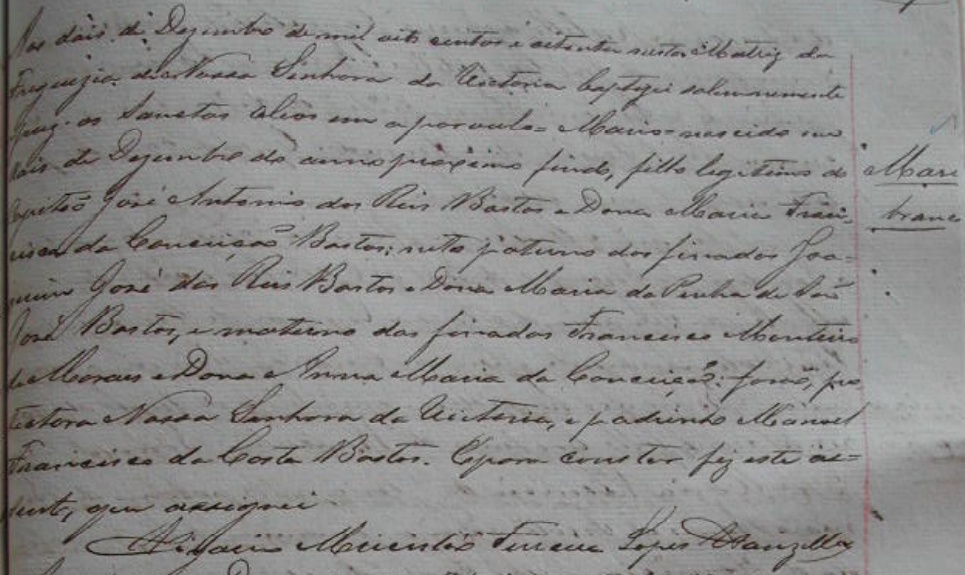 Aos dois de Dezembro de mil oito centos e oitenta nesta Matriz da
Freguezia de Nossa Senhora da Victoria baptizei solemnemente
e puz os Sanctos Oleos em o parvulo = Mario = nascido em
dois de Dezembro do anno proximo findo, filho legitimo do
Capitão José Antonio dos Reis Bastos e Dona Maria Fran-
cisca da Conceição Bastos; neto paterno dos finados Joa-
quim José dos Reis Bastos e Dona Maria da Penha de São
José Bastos, e materno dos finados Francisco Monteiro
de Moraes e Dona Anna Maria da Conceição; forão, pro
tectora Nossa Senhora da Victoria, e padrinho Manoel
Francisco da Costa Bastos. E para constar fiz este as-
sento, que assignei
Vigario Ferreira Lopes
Mari
branc